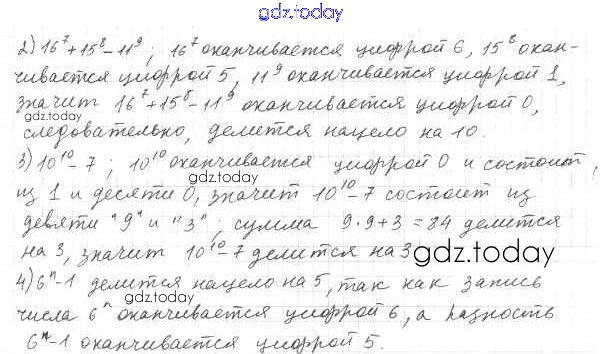 gdz.today
2) 16⁷+15⁸-11⁹; 16⁷ оканчивается цифрой 6, 15⁸ окан-
чивается цифрой 5, 11⁹ оканчивается цифрой 1,
значит 16⁷+15⁸-11⁹ оканчивается цифрой 0,
gdz.today
следовательно, делится нацело на 10.
3) 10¹⁰-7; 10¹⁰ оканчивается цифрой 0 и состоит,
gdz.today
из 1 и десяти 0, значит 10¹⁰-7 состоит из
девяти "9" и "3"; сумма 9·9+3=84 делится
на 3, значит 10¹⁰-7 делится на 3
gdz.today
4) 6ⁿ-1 делится нацело на 5, так как запись
gdz.today
числа 6ⁿ оканчивается цифрой 6, а разность
6ⁿ-1 оканчивается цифрой 5.